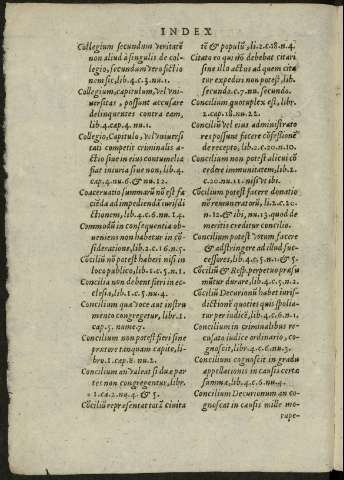 INDEX
Collegium secundum veritatẽ
non aliud à singulis de col-
legio, secundum vero fictio
nem sic, lib. 4. c. 3. nu. 1.
Collegium, capitulum, vel vni
uersitas, possunt accusare
delinquentes contra eam,
lib. 4. cap. 4. nu. 1.
Collegio, Capitulo, vel vniuersi
tati competit criminalis a-
ctio siue in eius contumelia
fiat iniuria siue non, lib. 4.
cap. 4. nu. 6. & nu. 12.
Coaceruatio summarũ nõ est fa
ciẽda ad impediendã iurisdi
ctionem, lib. 4. c. 6. nu. 14.
Commodũ in consequentia ob-
ueniens non habetur in cõ-
sideratione, lib. 2. c. 16. n. 5.
Cõciliũ nõ potest haberi nisi in
loco publico, lib. 1. c. 5. n. 1.
Concilia non debent fieri in ec-
clesia, lib. 1. c. 5. nu. 4.
Concilium qua voce aut instru
mento congregetur, libr. 1.
cap. 5. nume. 7.
Concilium non potest fieri sine
prætore tanquam capite, li-
br. 1. cap. 8. nu. 1.
Concilium an valeat si duæ par
tes non congregentur, libr.
1. ca. 2. nu. 4. & 5.
Cõciliũ repræsentat totã ciuita
tẽ & populũ, li. 2. c. 18. n. 4.
Citato eo qui nõ debebat citari
sine illo actus ad quem cita
tur expediri non potest, lib.
secundo. c. 7. nu. secundo.
Concilium quotuplex est, libr.
2. cap. 18. nu. 22.
Conciliũ vel eius administrato
res possunt facere cõfessionẽ
de recepto, lib. 2. c. 20. n. 10.
Concilium non potest alicui cõ
cedere immunitatem, lib. 2.
c. 20. nu. 11. nisi vt ibi.
Concilium potest facere donatio
nẽ remuneratoriã, li. 2. c. 20.
n. 12. & ibi, nu. 13. quod de
meritis creditur concilio.
Concilium potest votum facere
& adstringere ad illud suc-
cessores, lib. 4. c. 5. n. 1. & 5.
Conciliũ & Resp. perpetuo præsu
mitur durare, lib. 4. c. 5. n. 2.
Conciliũ Decurionũ habet iuris
dictionẽ quoties quis spolia-
tur per iudicẽ, lib. 4. c. 6. n. 1.
Concilium in criminalibus re-
cusato iudice ordinario, co-
gnoscit, lib. 4. c. 6. nu. 3.
Concilium cognoscit in gradu
appellationis in causis certæ
summæ, lib. 4. c. 6. nu. 4.
Concilium Decurionum an co-
gnoscat in causis mille mo-
rape-